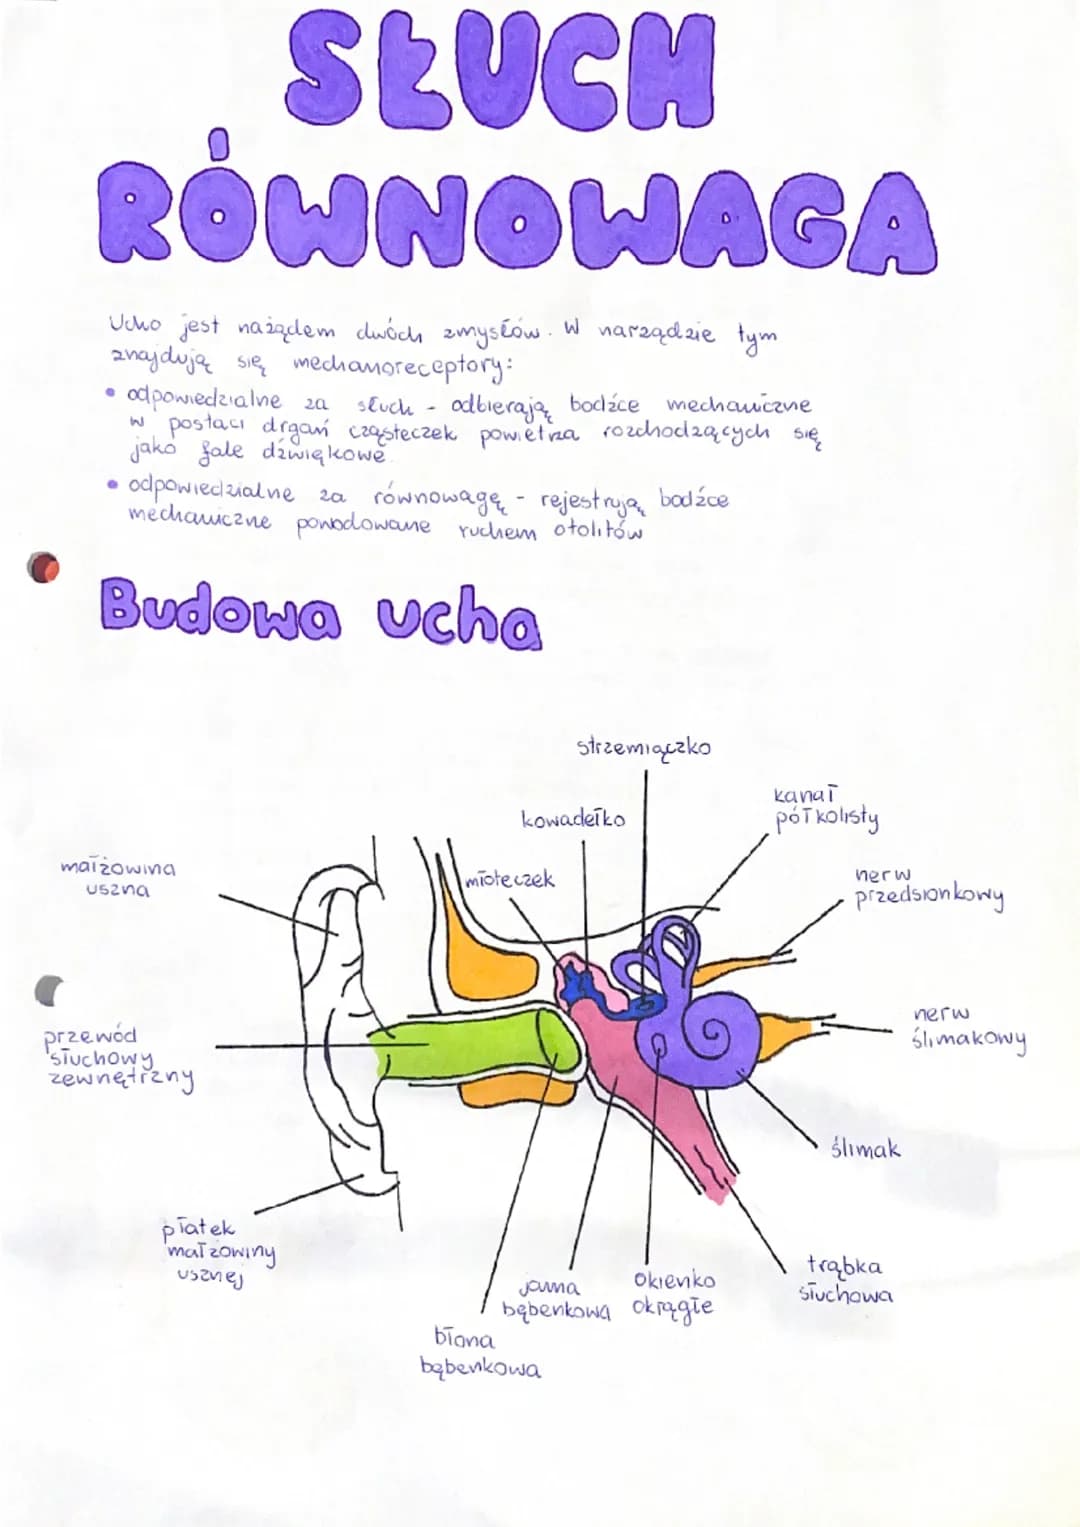 SŁUCH
RÓWNOWAGA
Ucho jest nażądem dwóch zmysłów. W narządzie tym
znajdują się mechanoreceptory:
• odpowiedzialne za słuch - odbierają bodźce mechaniczne
w postaci drgań cząsteczek powietrza rozchodzących się
jako fale dźwiękowe.
• odpowiedzialne za równowagę - rejestrują bodźce
mechaniczne powodowane ruchem otolitów
Budowa ucha
strzemiączko
kanał
półkolisty
kowadełko
małżowina
uszna
młoteczek
nerw
przedsionkowy
nerw
ślimakowy
przewód
słuchowy
zewnętrzny
ślimak
płatek
małżowiny
usznej
trąbka
słuchowa
jama
bębenkowa
okienko
okrągłe
błona
bębenkowa